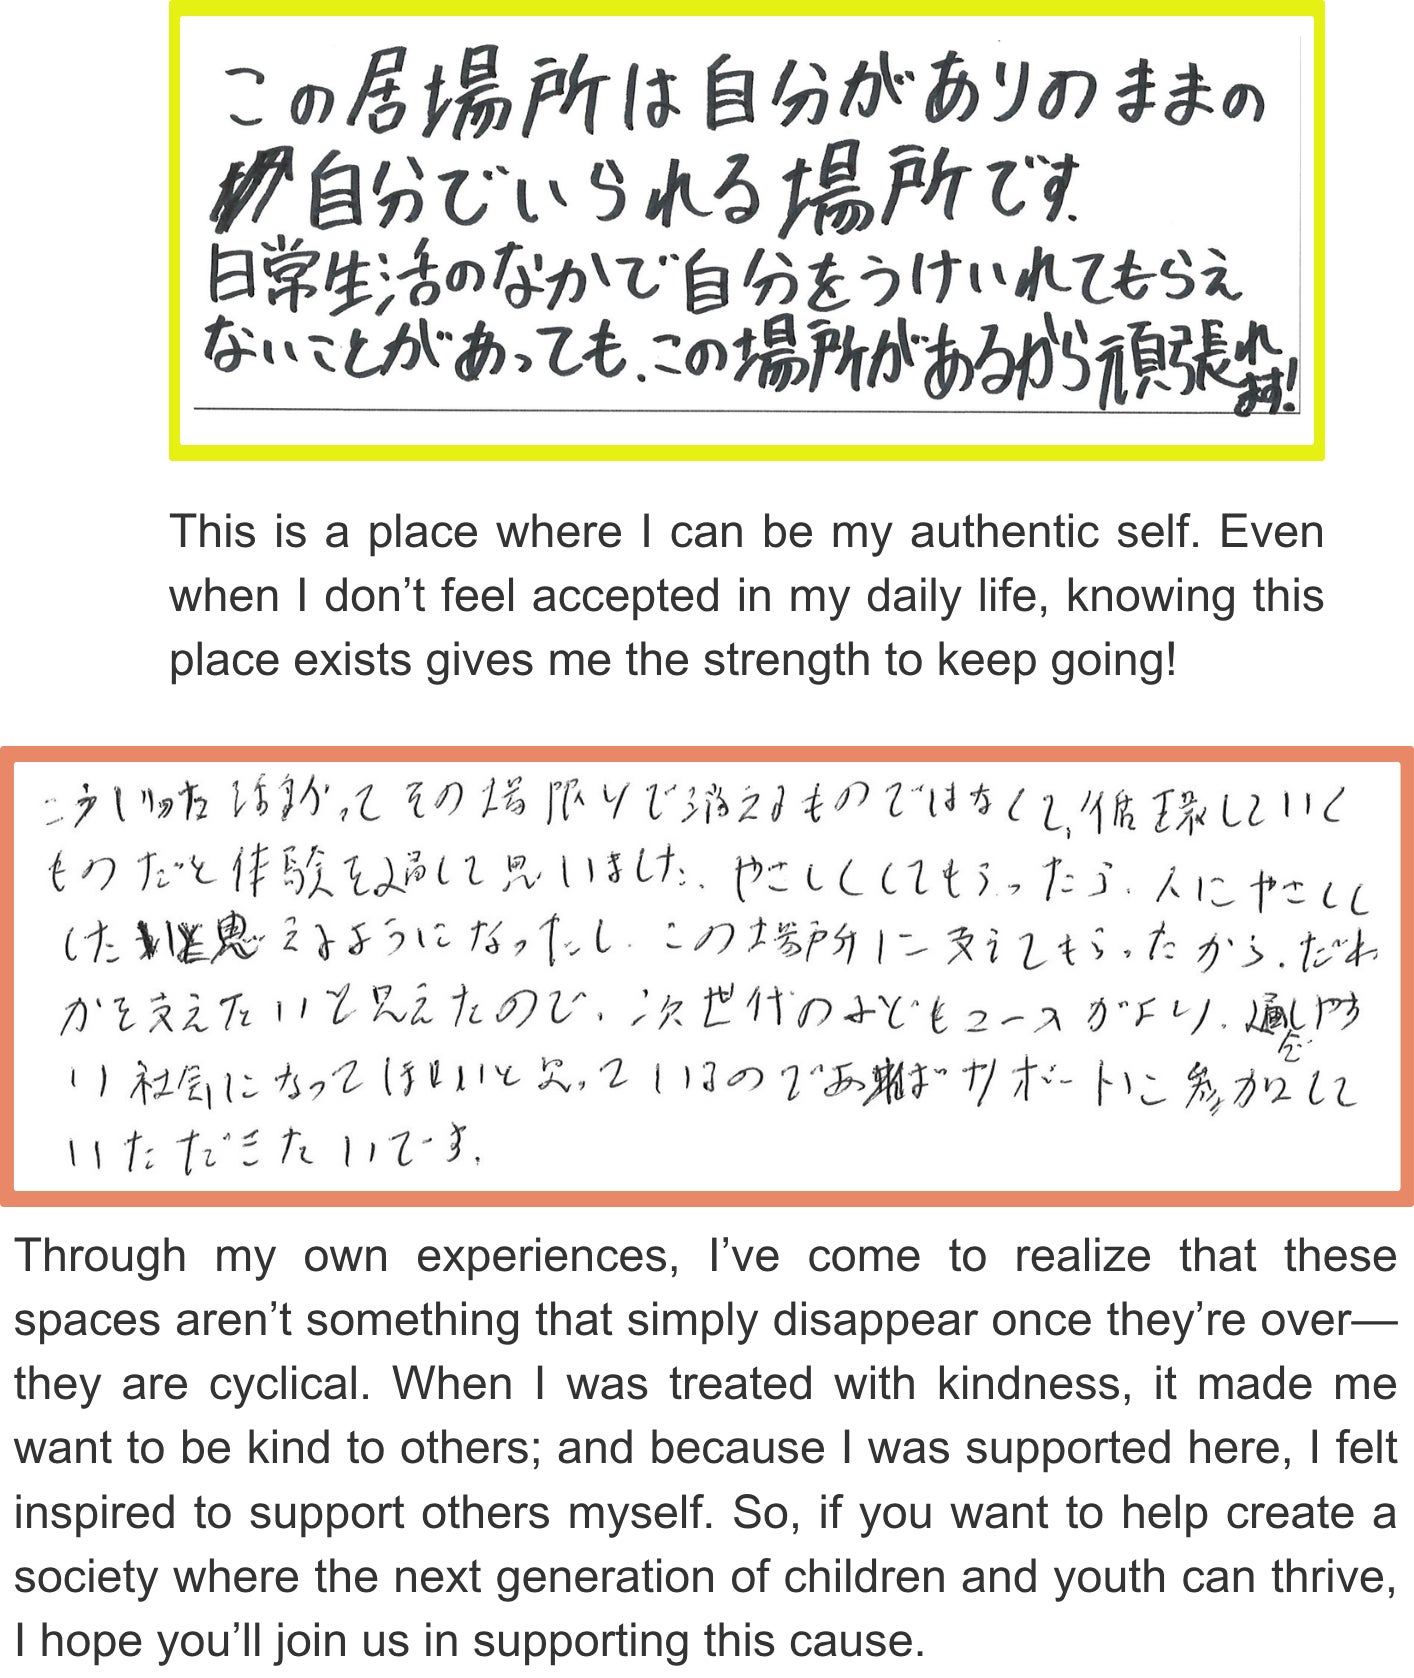 この居場所は自分がありのままの
自分でいられる場所です.
日常生活のなかで自分をうけいれてもらえ
ないことがあっても、この場所があるから頑張れ
ます!
This is a place where I can be my authentic self. Even
when I don’t feel accepted in my daily life, knowing this
place exists gives me the strength to keep going!
こういった活動ってその場限りで消えるものではなくて、循環していく
ものだと体験を通して思いました. やさしくしてもらったら、人にやさしく
したいと思えるようになったし、この場所に支えてもらったから、だれ
かを支えたいと思えたので、次世代の子どもユースがより、過しやす
い社会になってほしいと思っているのであればサポートに参加して
いただきたいです.
Through my own experiences, I’ve come to realize that these
spaces aren’t something that simply disappear once they’re over—
they are cyclical. When I was treated with kindness, it made me
want to be kind to others; and because I was supported here, I felt
inspired to support others myself. So, if you want to help create a
society where the next generation of children and youth can thrive,
I hope you’ll join us in supporting this cause.